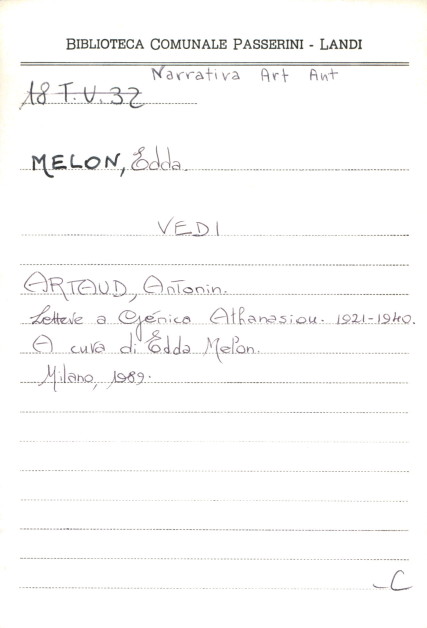 BIBLIOTECA COMUNALE PASSERINI - LANDI
Narrativa Art Ant
18 T.U.32
MELON, Edda.
VEDI
ARTAUD, Antonin.
Lettere a Génica Athanasiou. 1921-1940.
A cura di Edda Melon.
Milano, 1989.
C